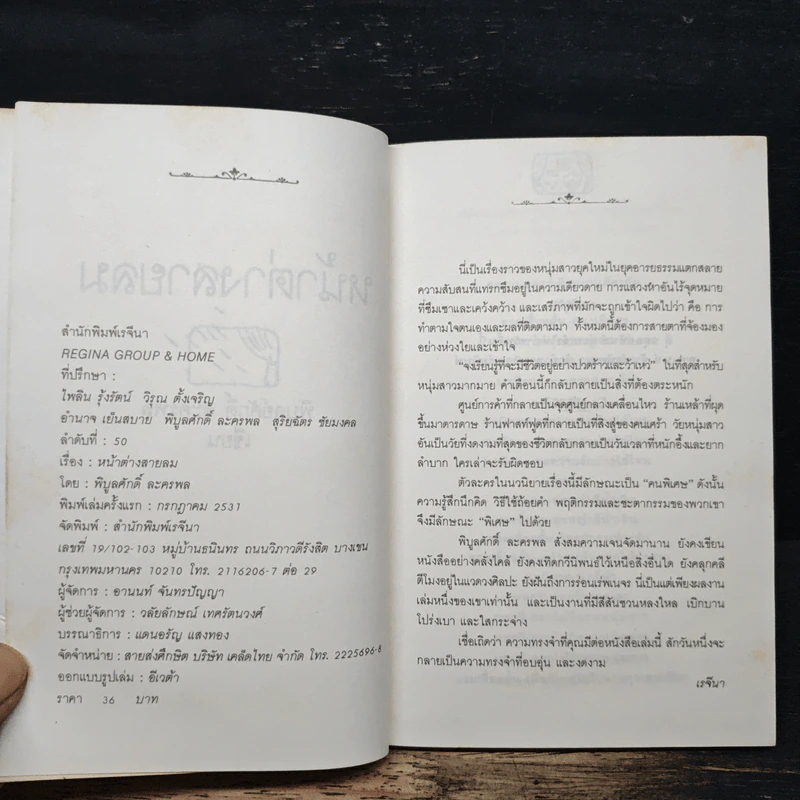 สำนักพิมพ์เรจีนา
REGINA GROUP & HOME
ที่ปรึกษา :
ไพลิน รุ้งรัตน์ วิรุณ ตั้งเจริญ
อำนาจ เย็นสบาย พิบูลศักดิ์ ละครพล สุริยฉัตร ชัยมงคล
ลำดับที่ : 50
เรื่อง : หน้าต่างสายลม
โดย : พิบูลศักดิ์ ละครพล
พิมพ์เล่มครั้งแรก : กรกฎาคม 2531
จัดพิมพ์ : สำนักพิมพ์เรจีนา
เลขที่ 19/102-103 หมู่บ้านธนินทร ถนนวิภาวดีรังสิต บางเขน
กรุงเทพมหานคร 10210 โทร. 2116206-7 ต่อ 29
ผู้จัดการ : อานนท์ จันทรปัญญา
ผู้ช่วยผู้จัดการ : วลัยลักษณ์ เทศรัตนวงศ์
บรรณาธิการ : แดนอรัญ แสงทอง
จัดจำหน่าย : สายส่งศึกษิต บริษัท เคล็ดไทย จำกัด โทร. 2225696-8
ออกแบบรูปเล่ม : อีเวต้า
ราคา 36 บาท
นี่เป็นเรื่องราวของหนุ่มสาวยุคใหม่ในยุคอารยธรรมแตกสลาย
ความสับสนที่แทรกซึมอยู่ในความเดียวดาย การแสวงหาอันไร้จุดหมาย
ที่ซึมเซาและเคว้งคว้าง และเสรีภาพที่มักจะถูกเข้าใจผิดไปว่า คือ การ
ทำตามใจตนเองและผลที่ติดตามมา ทั้งหมดนี้ต้องการสายตาที่จ้องมอง
อย่างห่วงใยและเข้าใจ
“จงเรียนรู้ที่จะมีชีวิตอยู่อย่างปวดร้าวและว้าเหว่” ในที่สุดสำหรับ
หนุ่มสาวมากมาย คำเตือนนี้ก็กลับกลายเป็นสิ่งที่ต้องตระหนัก
ศูนย์การค้าที่กลายเป็นจุดศูนย์กลางเคลื่อนไหว ร้านเหล้าที่ผุด
ขึ้นมาดารดาษ ร้านฟาสท์ฟูดที่กลายเป็นที่สิงสู่ของคนเศร้า วัยหนุ่มสาว
อันเป็นวัยที่งดงามที่สุดของชีวิตกลับกลายเป็นวันเวลาที่หนักอึ้งและยาก
ลำบาก ใครเล่าจะรับผิดชอบ
ตัวละครในนวนิยายเรื่องนี้มีลักษณะเป็น “คนพิเศษ” ดังนั้น
ความรู้สึกนึกคิด วิธีใช้ถ้อยคำ พฤติกรรมและชะตากรรมของพวกเขา
จึงมีลักษณะ “พิเศษ” ไปด้วย
พิบูลศักดิ์ ละครพล สั่งสมความเจนจัดมานาน ยังคงเขียน
หนังสืออย่างคลั่งไคล้ ยังคงเทิดกวีนิพนธ์ไว้เหนือสิ่งอื่นใด ยังคลุกคลี
ตีโมงอยู่ในแวดวงศิลปะ ยังฝันถึงการร่อนเร่พเนจร นี่เป็นแต่เพียงผลงาน
เล่มหนึ่งของเขาเท่านั้น และเป็นงานที่มีสีสันชวนหลงใหล เบิกบาน
โปร่งเบา และใสกระจ่าง
เชื่อเถิดว่า ความทรงจำที่คุณมีต่อหนังสือเล่มนี้ สักวันหนึ่งจะ
กลายเป็นความทรงจำที่อบอุ่น และงดงาม
เรจีนา